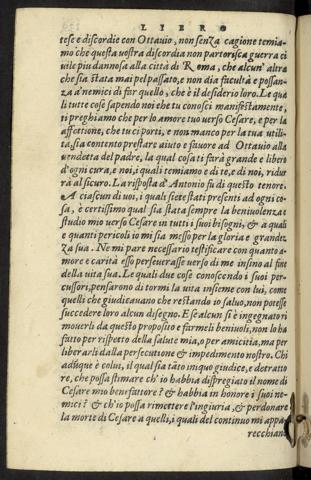 LIBRO
tese e discordie con Ottauio, non senza cagione temia-
mo che questa uostra discordia non partorisca guerra ci
uile piu dannosa alla città di Roma, che alcun' altra
che sia stata mai pel passato, e non dia facultà e possan-
za à nemici di far quello, che è il desiderio loro. Le qua
li tutte cose sapendo noi che tu conosci manifestamente,
ti preghiamo che per lo amore tuo uerso Cesare, e per la
affettione, che tu ci porti, e non manco per la tua utili
tà, sia contento prestare aiuto e fauore ad Ottauio alla
uendetta del padre, la qual cosa ti farà grande e libero
d'ogni cura, e noi, i quali temiamo e di te, e di noi, ridur
rà al sicuro. La risposta d'Antonio fu di questo tenore.
A ciascun di uoi, i quali siete stati presenti ad ogni co-
sa, è certissimo qual sia stata sempre la beniuolenza e
studio mio uerso Cesare in tutti i suoi bisogni, & a quali
e quanti pericoli io mi sia messo per la gloria e grandez
za sua. Ne mi pare necessario testificare con quanto a-
more e carità esso perseuerasse uerso di me insino al fine
della uita sua. Le quali due cose conoscendo i suoi per-
cussori, pensarono di tormi la uita insieme con lui, come
quelli che giudicauano che restando io saluo, non potesse
succedere loro alcun disegno. E se alcun si è ingegnato ri
mouerli da questo proposito e farmeli beniuoli, non lo ha
fatto per rispetto della salute mia, o per amicitia, ma per
liberarli dalla persecutione & impedimento nostro. Chi
adũque è colui, il qual sia tãto iniquo giudice, e detratto
re, che possa stimare ch' io habbia dispregiato il nome di
Cesare mio benefattore? & habbia in honore i suoi ne-
mici? & ch'io possa rimettere l'ingiuria, & perdonare
la morte di Cesare a quelli, i quali del continuo mi appa-
recchiano